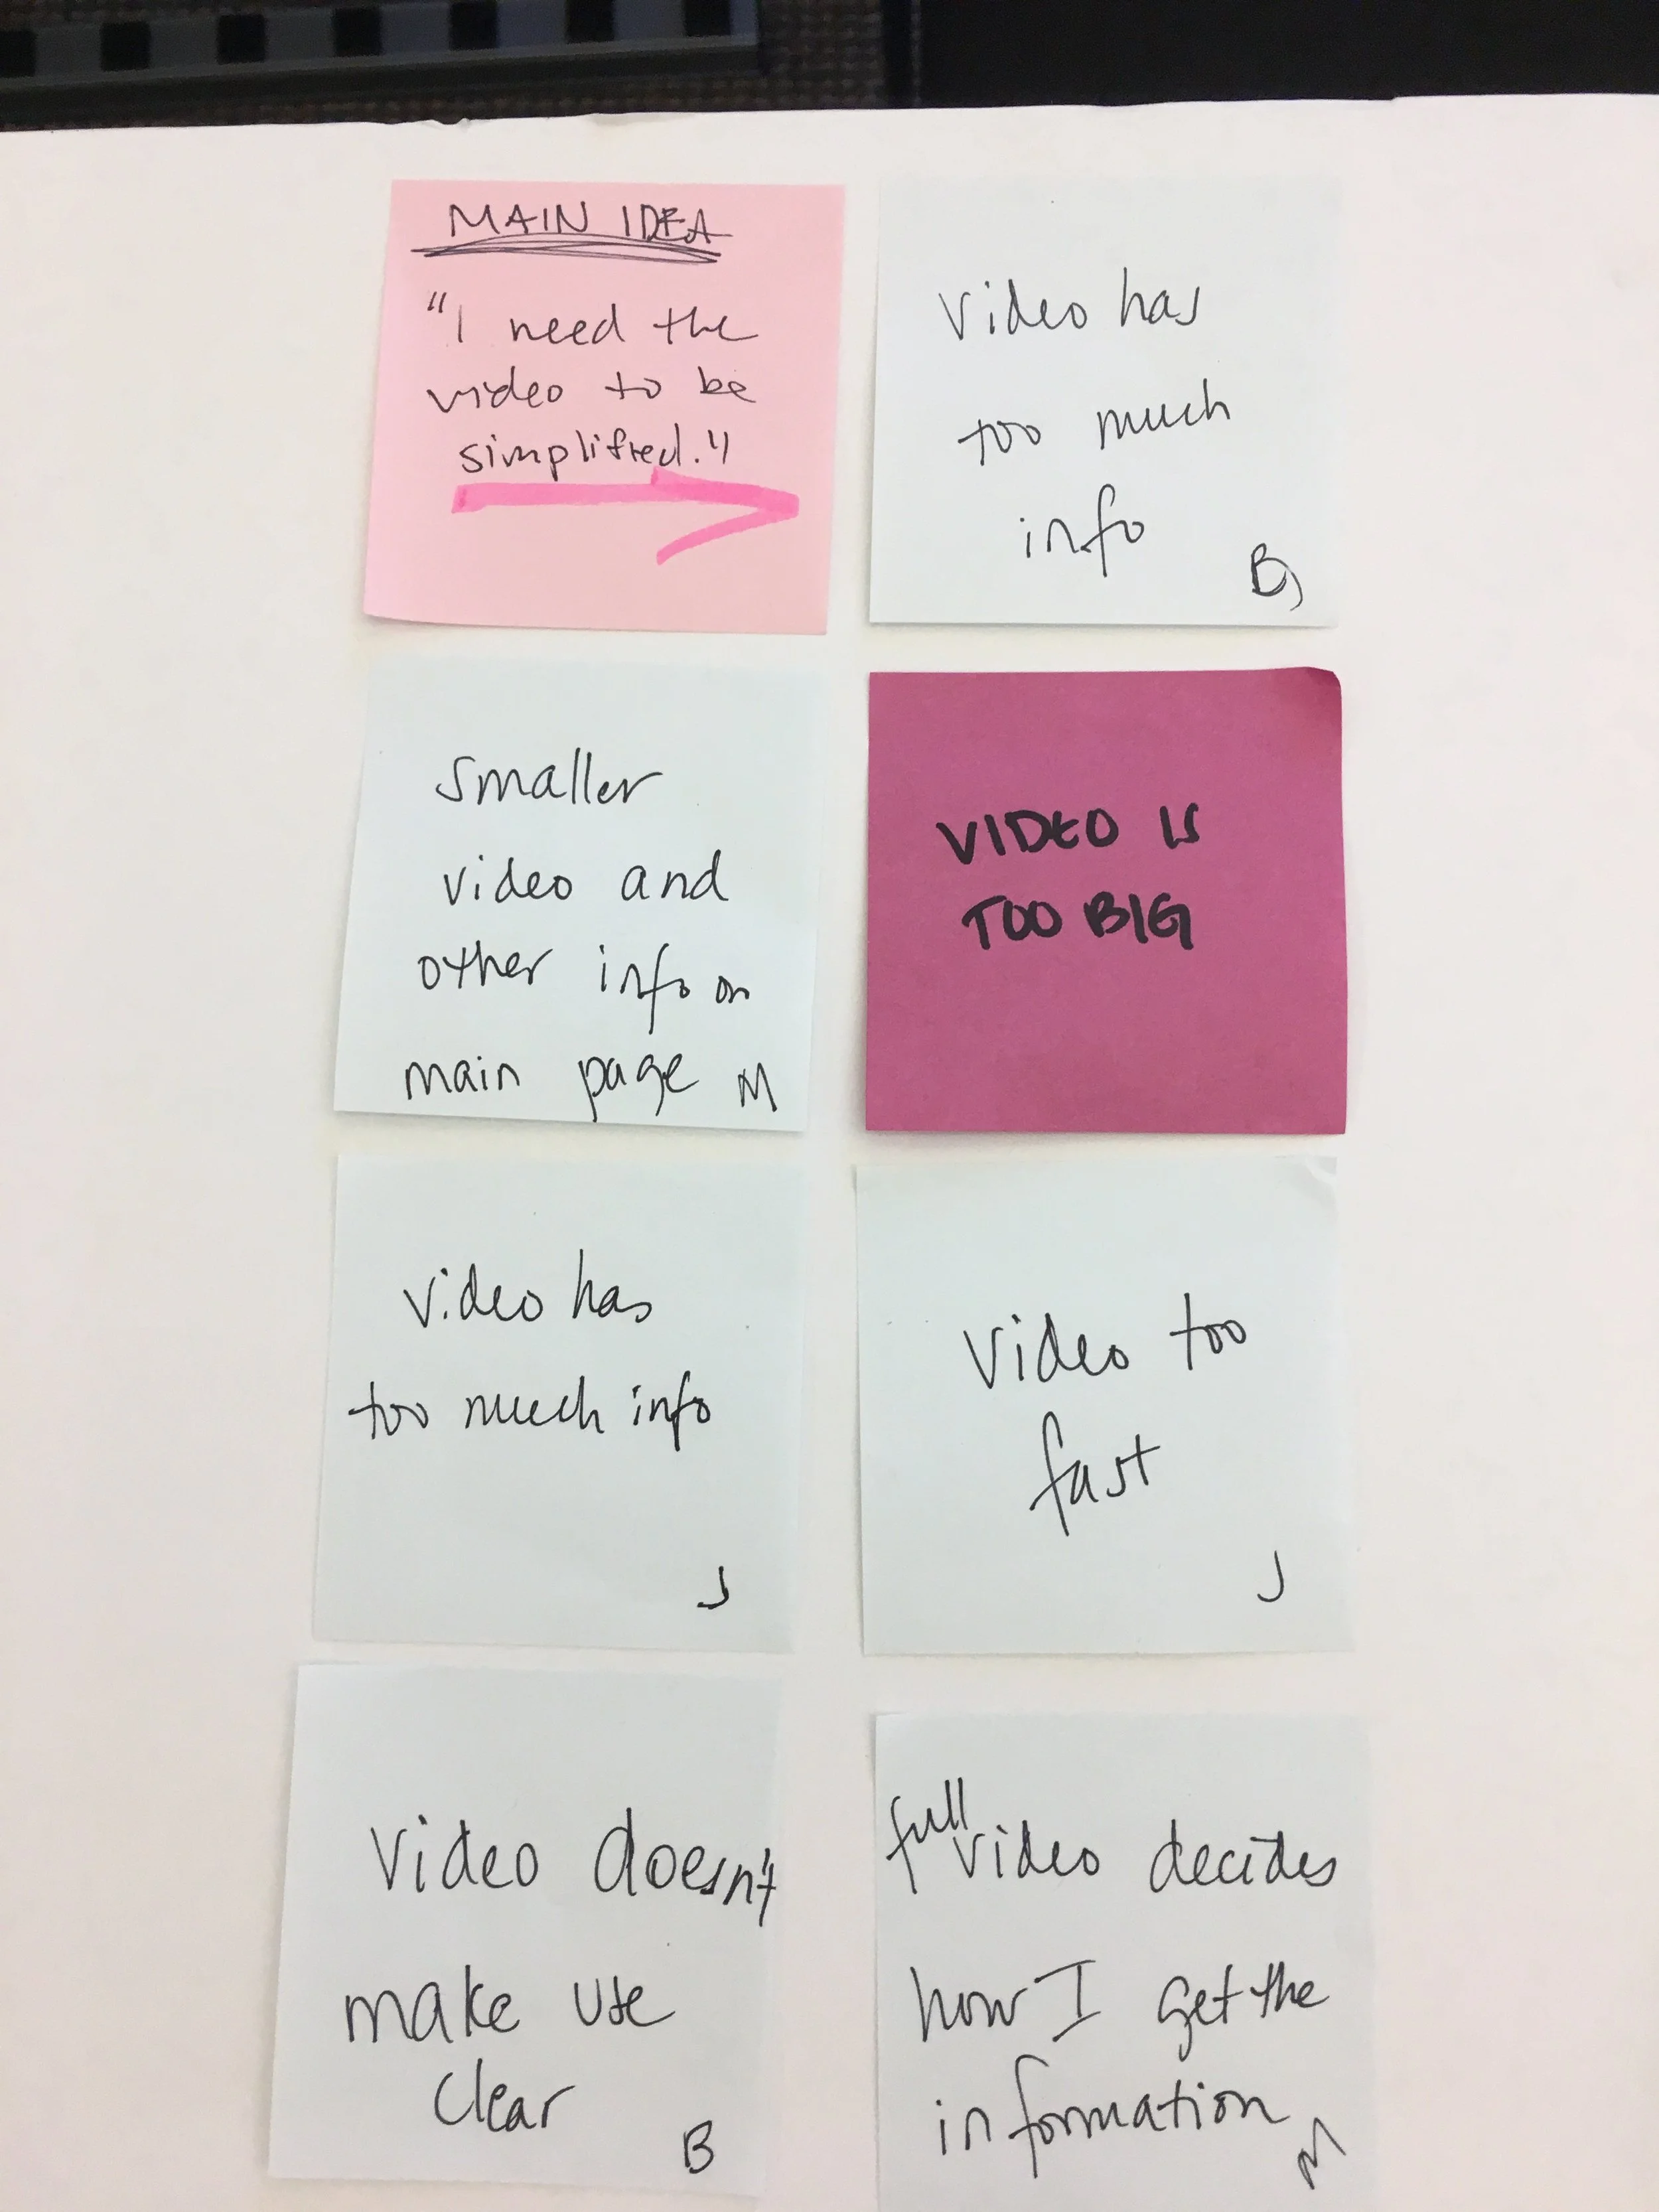 MAIN IDEA
"I need the
video to be
simplified."
Video has
too much
info
B
Smaller
video and
other info on
main page M
VIDEO IS
TOO BIG
Video has
too much info
J
Video too
fast
J
Video doesn't
make use
clear
B
full video decides
how I get the
information
M